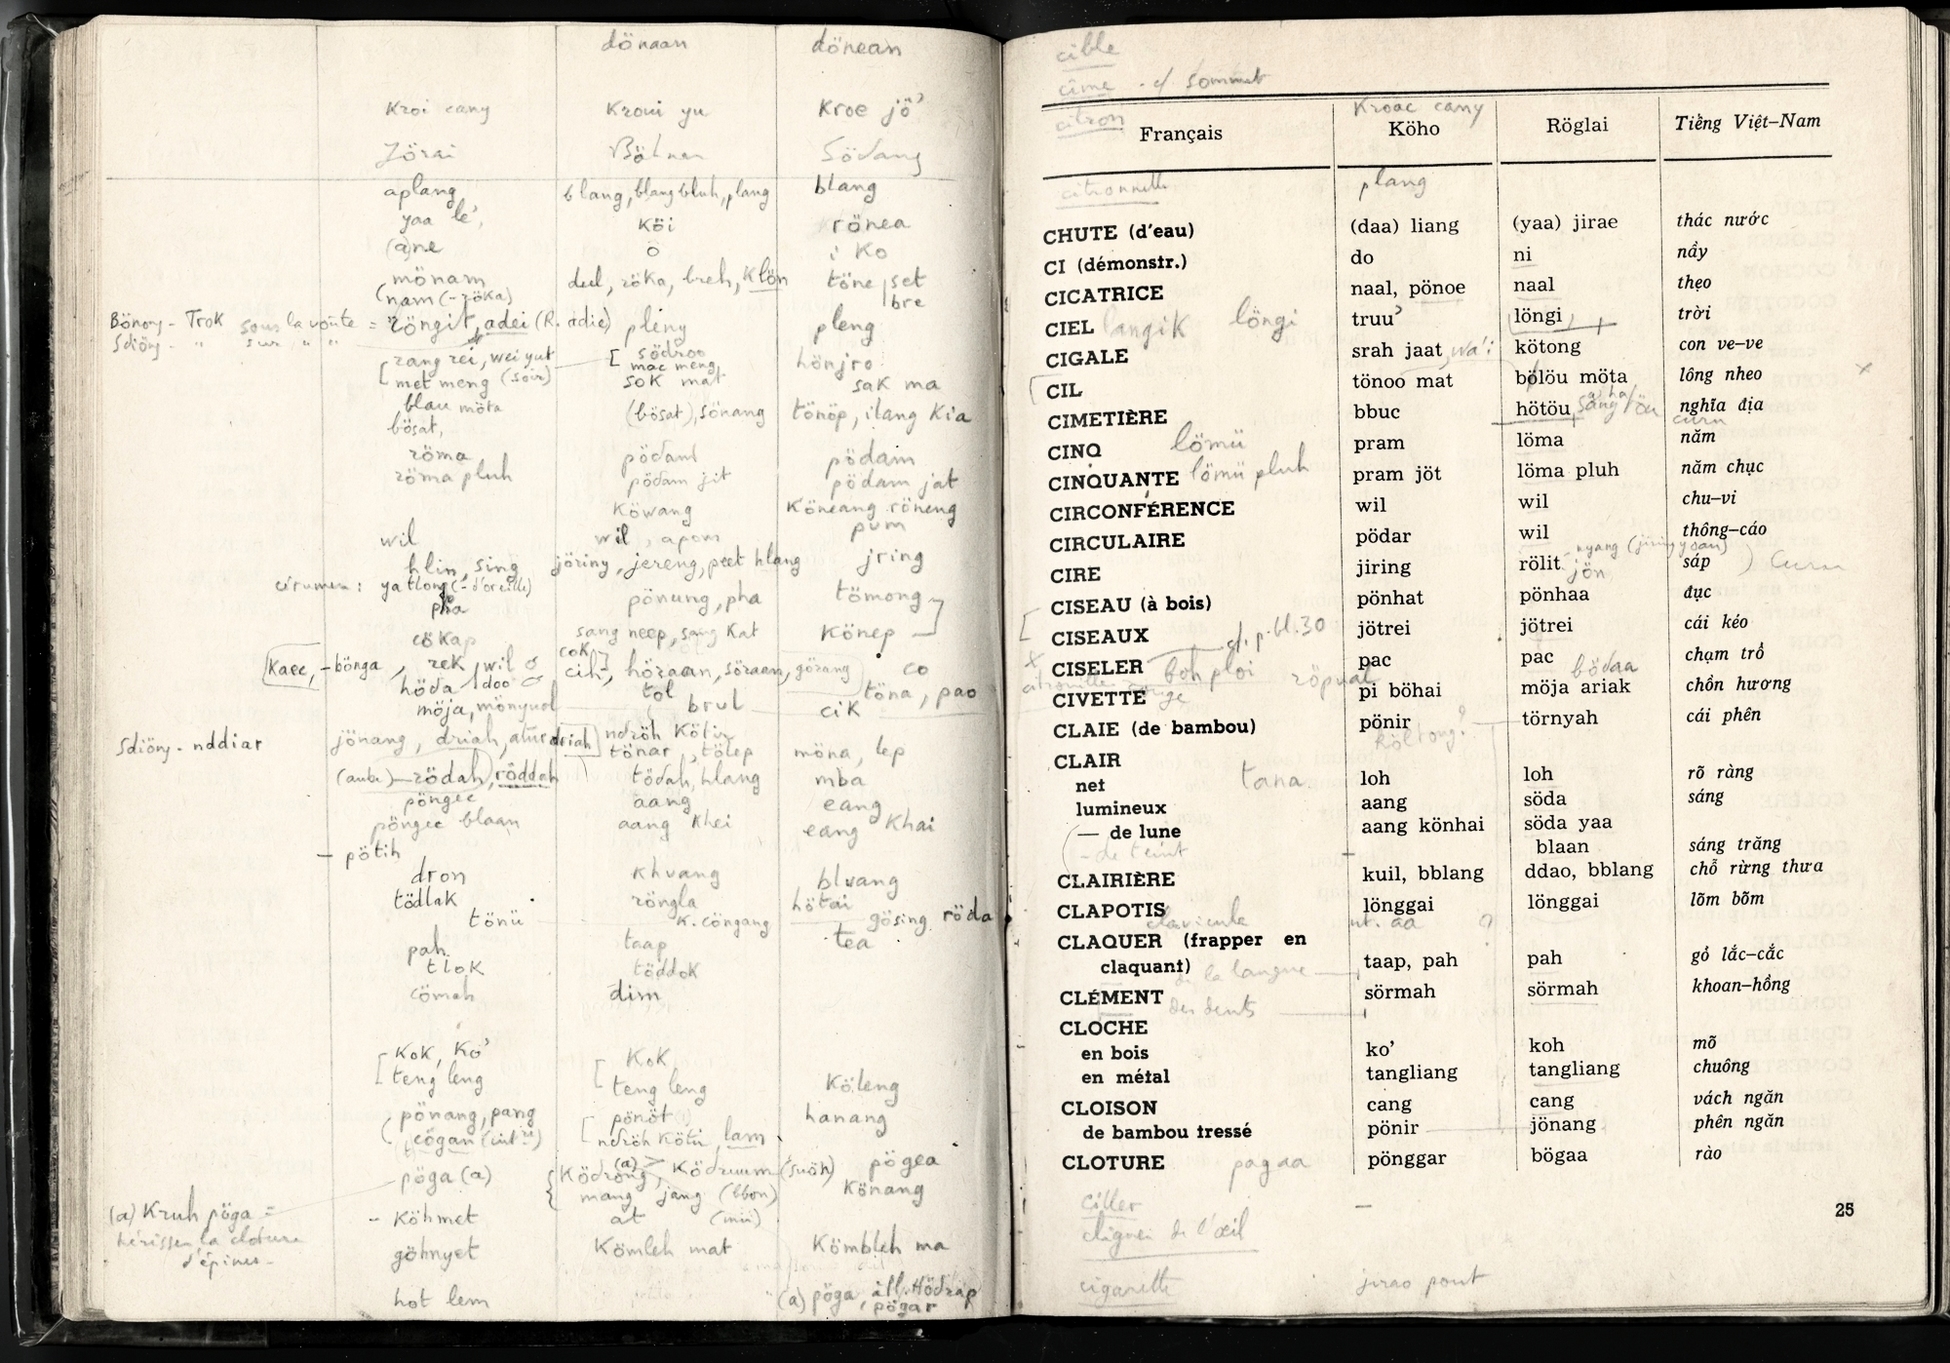 dönaan dönean
Kroi cany Kroui yu Kroe jö'
Jörai Böhnar Södang
aplang blang, blang bluh, plang blang
yaa le', köi rönea
(a)ne ö i Ko
mönam dul, röka, breh, Klön töne set
nam (-röka) bre
Bönom - Trok sous la voûte = röngit, adei (R. adie) pleny pleng
Sdiöny - " sur " "
rang rei, wei yut södroo hönjro
met meng (soir) mac meng
sok mat sak ma
blau möta (bösat), sönang tönöp, ilang Kia
bösat,
röma pödam pödam
röma pluh pödam jit pödam jat
Köwang Köneang röneng
pum
wil wil, apom
hlin, sing jöriny, jereng, peet hlang jring
cirumen: yatlong (- d'oreille)
pha pönung, pha tömong
cökap sang neep, sang Kat Könep
Kaec, - bönga, rek wil cok cih, höraan, söraan, görang co
höda doo tol töna, pao
möja, mönyuol brul cik
Sdiöny - nddiar jönang, driah, atur driah ndröh Kötir
tönar, tölep möna, lep
(aube) - rödah, röddah tödah, hlang mba
pöngec aang eang
pöngec blaan aang Khei eang Khai
- pötih
dron Khvang blvang
tödlak röngla hötai
tönü K. cöngang gösing röda
pah taap tea
tlok töddok
cömah dim
Kok, Ko' Kok
teng leng teng leng Köleng
pönang, pang pönöt hanang
cögan ndröh Kötir, lam
pöga (a) Ködrong (a), Ködruum (suöh) pögea
mang jang (bbon) Könang
(a) Kruh pöga = - Köhmet at
hérisser la cloture göhnyet Kömleh mat Kömbleh ma
d'épines -
hot lem (a) pöga, áll. Hödrap
pögar
cible
cime - cf sommet
citron Kroac cany
Français Köho Röglai Tiếng Việt–Nam
citronnelle plang
CHUTE (d'eau) (daa) liang (yaa) jirae thác nước
CI (démonstr.) do ni nầy
CICATRICE naal, pönoe naal thẹo
CIEL langik löngi truu' löngi trời
CIGALE srah jaat wa'i kötong con ve–ve
CIL tönoo mat bölöu möta lông nheo
CIMETIÈRE bbuc hötöu nghĩa địa
CINQ lömü pram löma năm
CINQUANTE lömü pluh pram jöt löma pluh năm chục
CIRCONFÉRENCE wil wil chu–vi
CIRCULAIRE pödar wil thông–cáo
CIRE jiring rölit jön sáp
CISEAU (à bois) pönhat pönhaa đục
CISEAUX cf. p. bl. 30 jötrei jötrei cái kéo
CISELER pac pac chạm trổ
citrouille rouge boh ploi röpual bödaa
CIVETTE pi böhai möja ariak chồn hương
CLAIE (de bambou) pönir törnyah cái phên
költong?
CLAIR
net tana loh loh rõ ràng
lumineux aang söda sáng
— de lune aang könhai söda yaa
blaan sáng trăng
- de teint
CLAIRIÈRE kuil, bblang ddao, bblang chỗ rừng thưa
CLAPOTIS lönggai lönggai lõm bõm
clavicule nt. aa ?
CLAQUER (frapper en
claquant) taap, pah pah gỏ lắc–cắc
de la langue
CLÉMENT sörmah sörmah khoan–hồng
des dents
CLOCHE
en bois ko' koh mõ
en métal tangliang tangliang chuông
CLOISON cang cang vách ngăn
de bambou tressé pönir jönang phên ngăn
CLOTURE pagaa pönggar bögaa rào
25
ciller
cligner de l'œil
cigarette jirao pout